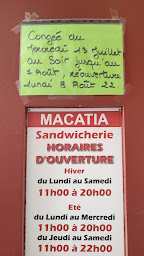 Congée du
Mercredi 13 Juillet
au Soir jusqu'au
7 Août, réouverture
Lundi 8 Août 22
MACATIA
Sandwicherie
HORAIRES
D'OUVERTURE
Hiver
du Lundi au Samedi
11h00 à 20h00
Eté
du Lundi au Mercredi
11h00 à 20h00
du Jeudi au Samedi
11h00 à 22h00